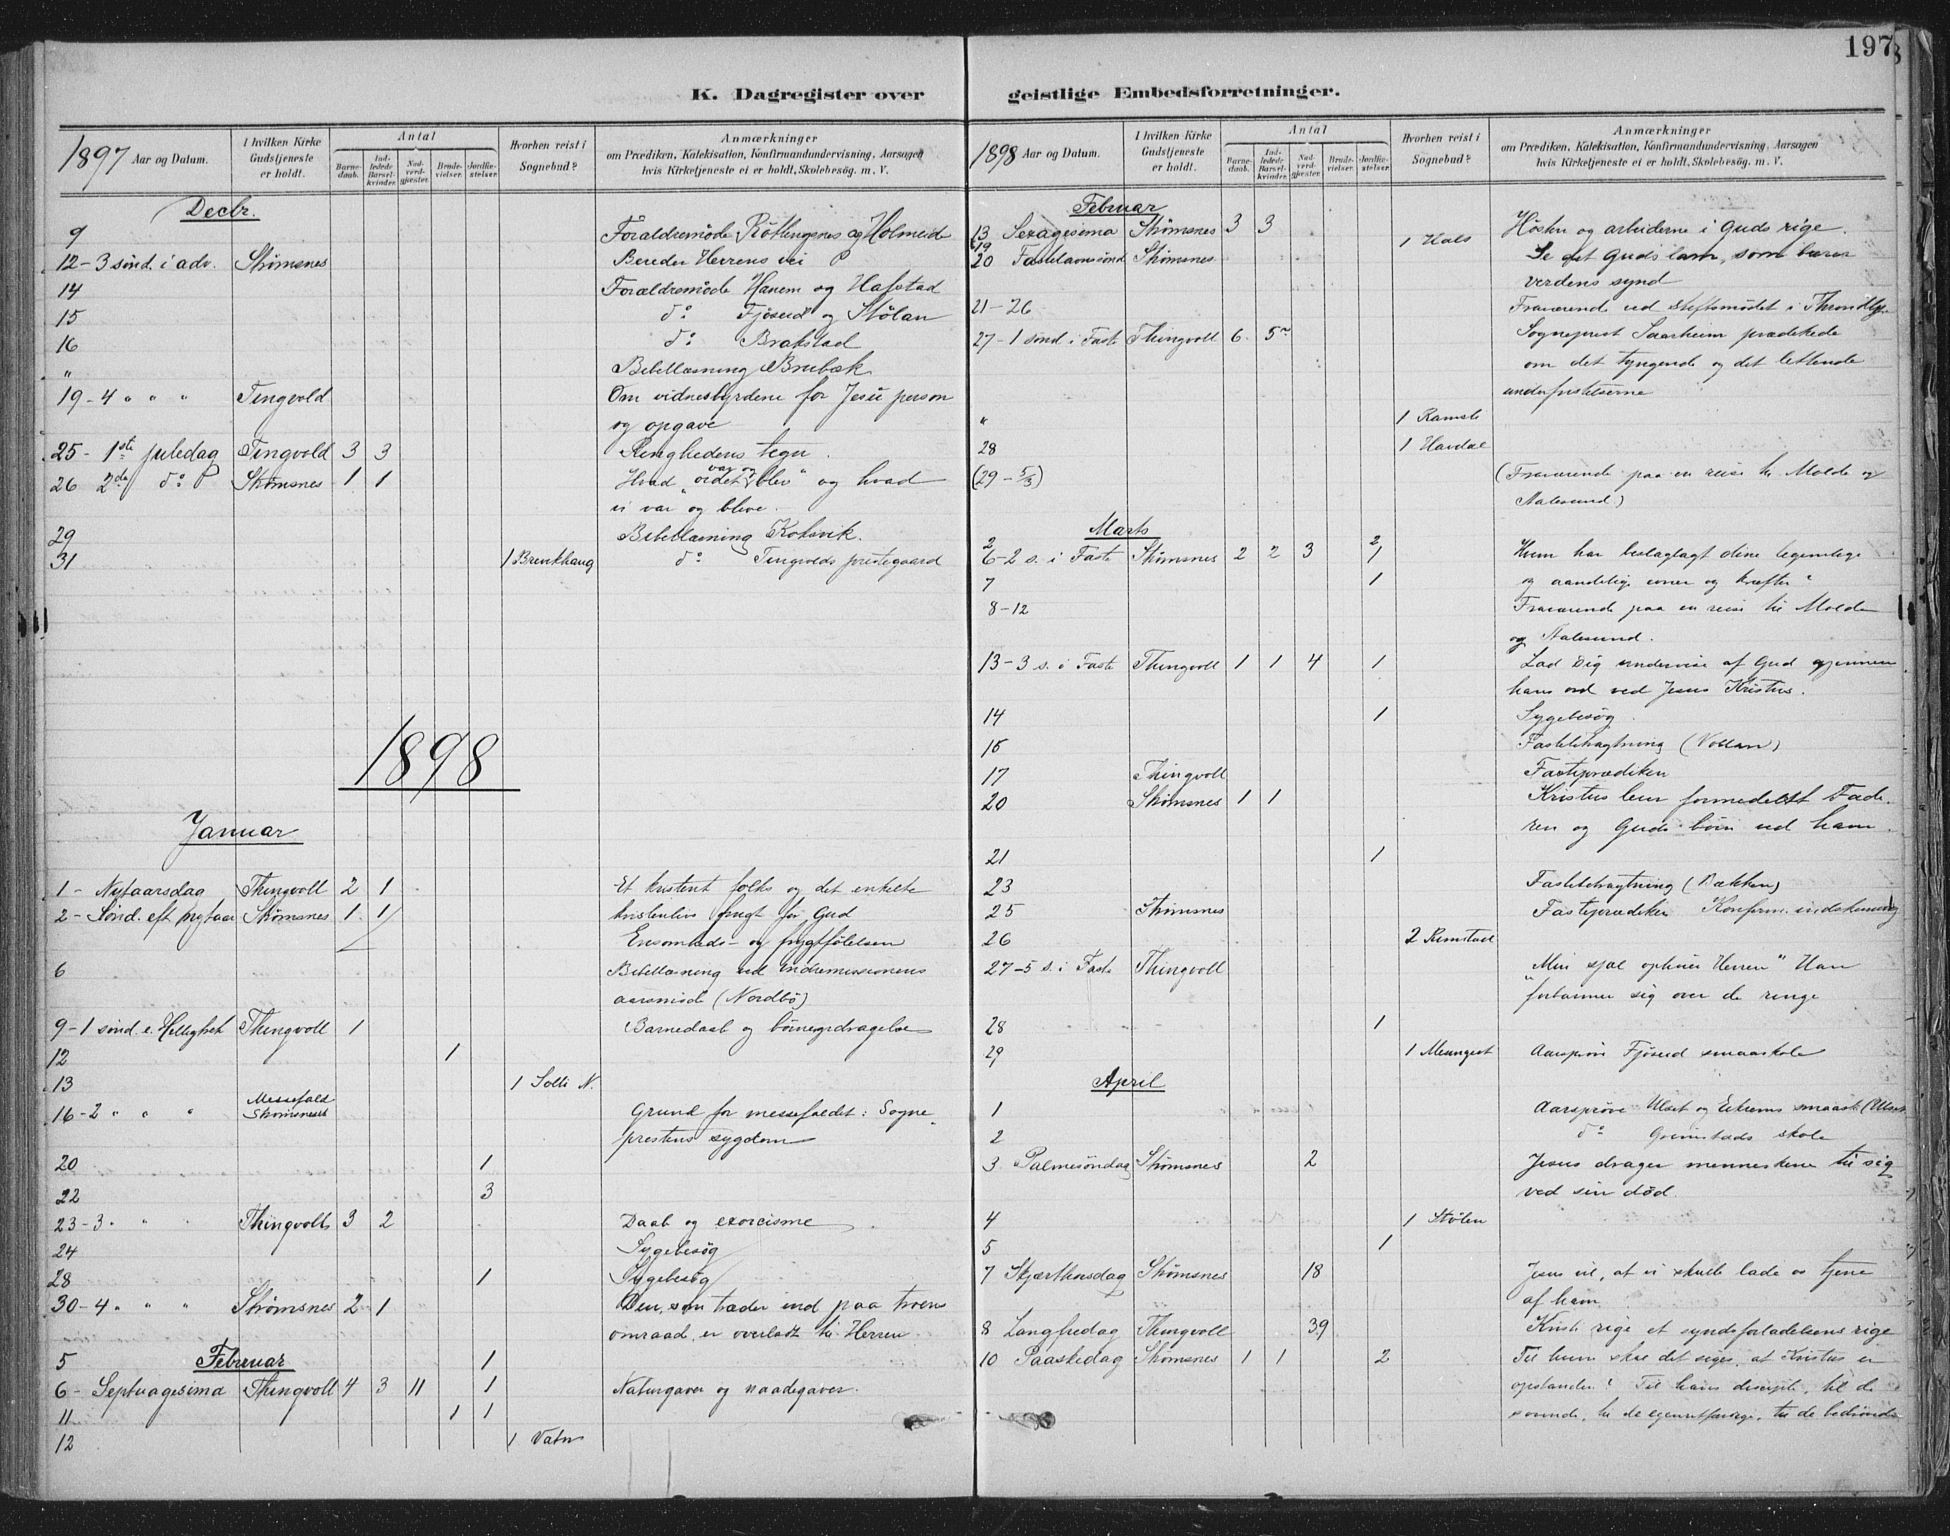 197
K. Dagregister over geistlige Embedsforretninger.
1897 Aar og Datum.
I hvilken Kirke Gudstjeneste er holdt.
Antal
Barnedaab.
Indledede Barselkvinder.
Nadverdgjester.
Brudevielser.
Jordfæstelser.
Hvorhen reist i Sognebud?
Anmærkninger
om Prædiken, Katekisation, Konfirmandundervisning, Aarsagen
hvis Kirketjeneste ei er holdt, Skolebesøg. m. V.
Decbr.
9 Foraldremöde Röttengenes og Holmeide
12 - 3 sönd. i adv. Strømsnes Bereder Herrens vei
14 Forældremöde Hanem og Hafstad
15 do Fjöseid og Stölan
16 do Brakstad
" Bibellæsning Brubæk
19 - 4 " " " Tingvold Om vidnesbyrdene for Jesu person
og opgave
25 - 1ste juledag Tingvold 3 3 Ringhedens tegn.
26 2den do Strømsnes 1 1 Hvad "ordet var og blev" og hvad
vi var og blive.
29 Bibellæsning Koksvik.
31 1 Brenkhaug do Tingvolds prestegaard
1898
Januar
1 - Nytaarsdag Thingvoll 2 1 Et kristent folks og det enkelte
2 - Sönd. eft nytaar Strømsnes 1 1 kristenlivs frugt for Gud
Ensomheds- og frygtfölelsen
6 Bibellæsning ved Indremissionens
aarsmöde (Nordbö)
9 - 1 sönd. e. Helligtrek Thingvoll 1 Barnedaab og börneopdragelse
12 1
13 1 Solli N.
16 - 2 " " " Messefald Strømsnes Grund for messefaldet: Sogne-
prestens sygdom
20 1
22 3
23 - 3 " " " Thingvoll 3 2 Daab og exorcisme
24 Sygebesög
28 1 Sygebesög
30 - 4 " " " Strømsnes 2 1 Den, som træder ind paa troens
omraad, er overladt til Herren.
Februar
5 1
6 - Septuagesima Thingvoll 4 3 11 1 Naturgaver og naadegaver.
11 1 1
12 1 Vatn
1898 Aar og Datum.
I hvilken Kirke Gudstjeneste er holdt.
Antal
Barnedaab.
Indledede Barselkvinder.
Nadverdgjester.
Brudevielser.
Jordfæstelser.
Hvorhen reist i Sognebud?
Anmærkninger
om Prædiken, Katekisation, Konfirmandundervisning, Aarsagen
hvis Kirketjeneste ei er holdt, Skolebesøg m. V.
Februar
13 Sexagesima Strømsnes 3 3 Hösten og arbeiderne i Guds rige.
19 1 Hals
20 Fastelavnssönd Strømsnes Se det Guds lam, som bærer
verdens synd
21 - 26 Fraværende ved stiftsmödet i Throndhjem
27 - 1 sönd i Faste Thingvoll 6 5 Sogneprest Saarheim prædikede
om det tyngende og det lettende
under fristelserne
" 1 Ramsli
28 1 Havdal
(29 - 5/3) (Fraværende paa en reise til Molde og
Aalesund)
Marts
2 2
6 - 2 s. i Faste Strømsnes 2 2 3 1 Hvem har beslaglagt dine legemlige
7 1 og aandelige evner og kræfter?
8 - 12 Fraværende paa en reise til Molde
og Aalesund.
13 - 3 s. i Faste Thingvoll 1 1 4 1 Lad Dig undervise af Gud gjennem
hans ord ved Jesus Kristus.
14 1 Sygebesög.
15 Fastebetragtning (Vollan)
17 Thingvoll Fasteprædiken
20 Strømsnes 1 1 Kristus lever formedelst Fade-
ren og Guds börn ved ham.
21 1
23 Fastebetragtning (Bækken)
25 Strømsnes Fasteprædiken Konfirm. indskrivning
26 2 Rimstad
27 - 5 s. i Faste Thingvoll "Min sjæl ophöier Herren" Han
forbarmer sig over de ringe
28 1
29 1 Meungest Aarspröve Fjöseid smaaskole
April
1 Aarspröve Ulset og Eikrems smaask (Ulset)
2 do Grimstads skole
3 Palmesöndag Strømsnes 2 Jesus drager menneskene til sig
ved sin död.
4 1 Stölen
5 1
7 Skjærthorsdag Strømsnes 18 Jesus vil, at vi skulle lade os tjene
af ham
8 Langfredag Thingvoll 39 Kristi rige et syndsforladelsens rige
10 Paaskedag Strømsnes 1 1 2 Til hvem skal det siges, at Kristus er
opstanden? Til hans disciple, til de
til de bedrövede